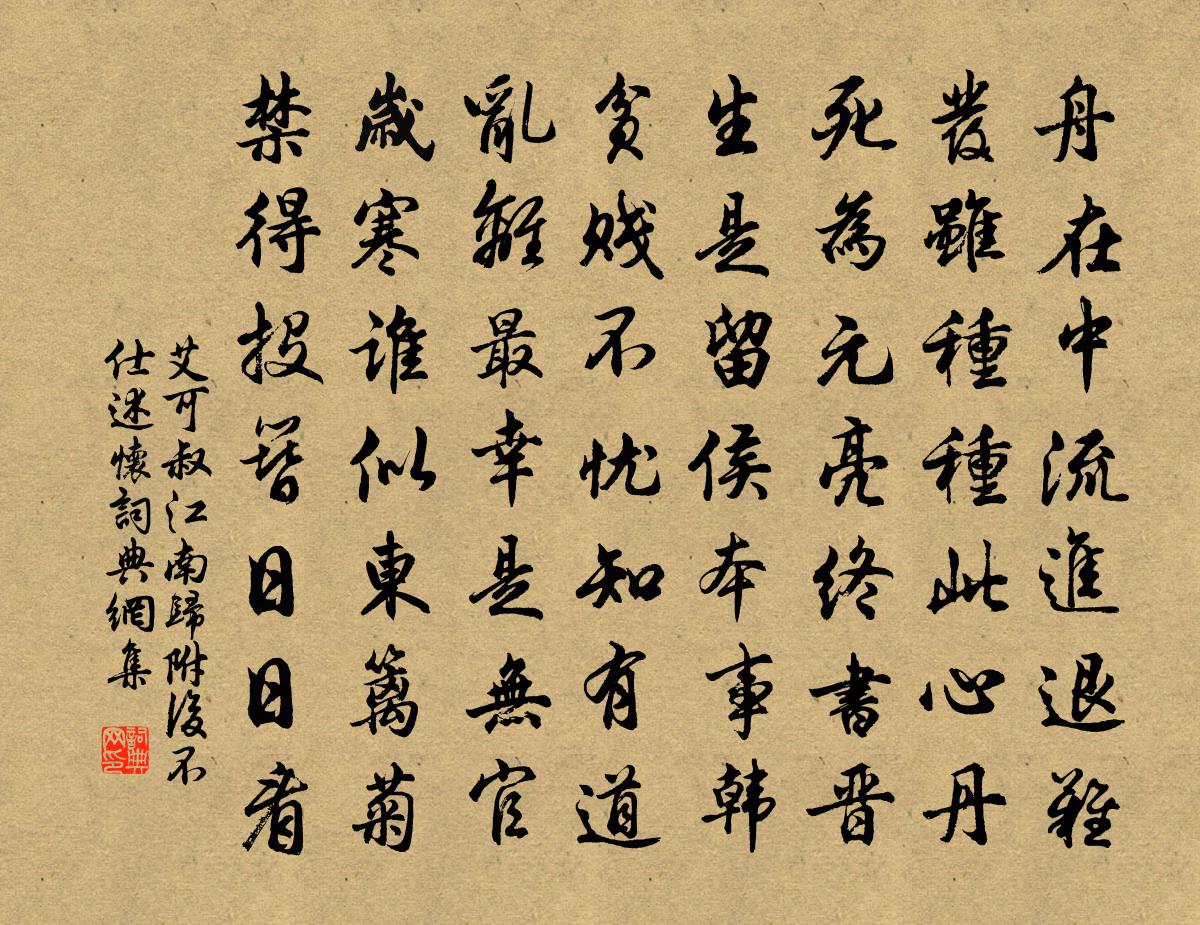 舟在中流進退難
發雖種種此心丹
死為元亮終書晋
生是留侯本事韓
貧賤不忧知有道
亂離最幸是無官
歲寒誰似東籬菊
禁得投簪日日看
艾可叔江南歸附後不
仕述懷詞典網集
詞典
网印